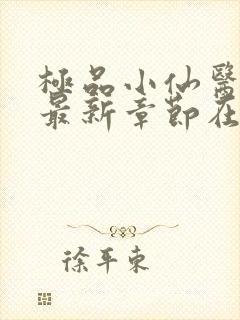 極品小仙醫
最新章節在
徐平東